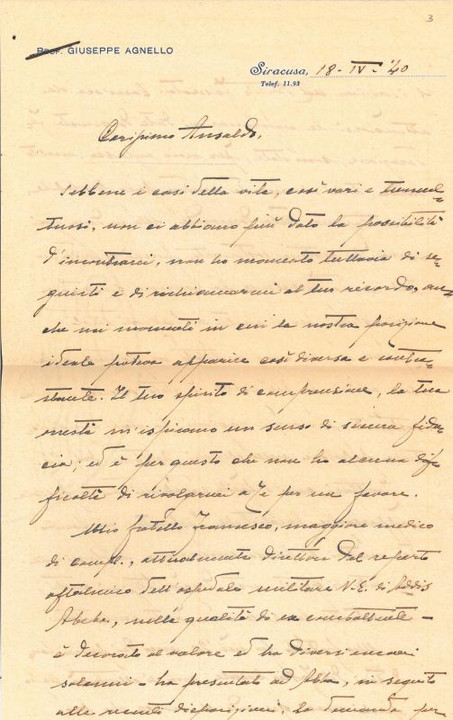 3
Prof. GIUSEPPE AGNELLO
Siracusa, 18-IV-'40
Telef. 11.93
Carissimo Ansaldo,
Sebbene i casi della vita, così vari e tumul-
tuosi, non ci abbiano più dato la possibilità
d'incontrarci, non ho mancato tuttavia di se-
guirti e di richiamarmi al tuo ricordo, an-
che nei momenti in cui la nostra posizione
ideale poteva apparire così diversa e contra-
stante. Il tuo spirito di comprensione, la tua
onestà m'ispirano un senso di sicura fidu-
cia; ed è per questo che non ho alcuna dif-
ficoltà di rivolgermi a te per un favore.
Mio fratello Francesco, maggiore medico
di compl., attualmente direttore del reparto
oftalmico dell'ospedale militare V.E. di Addis
Abeba, nella qualità di ex combattente -
è decorato al valore ed ha diversi encomi
solenni - ha presentato ad Abba, in seguito
alle recenti disposizioni, la domanda per